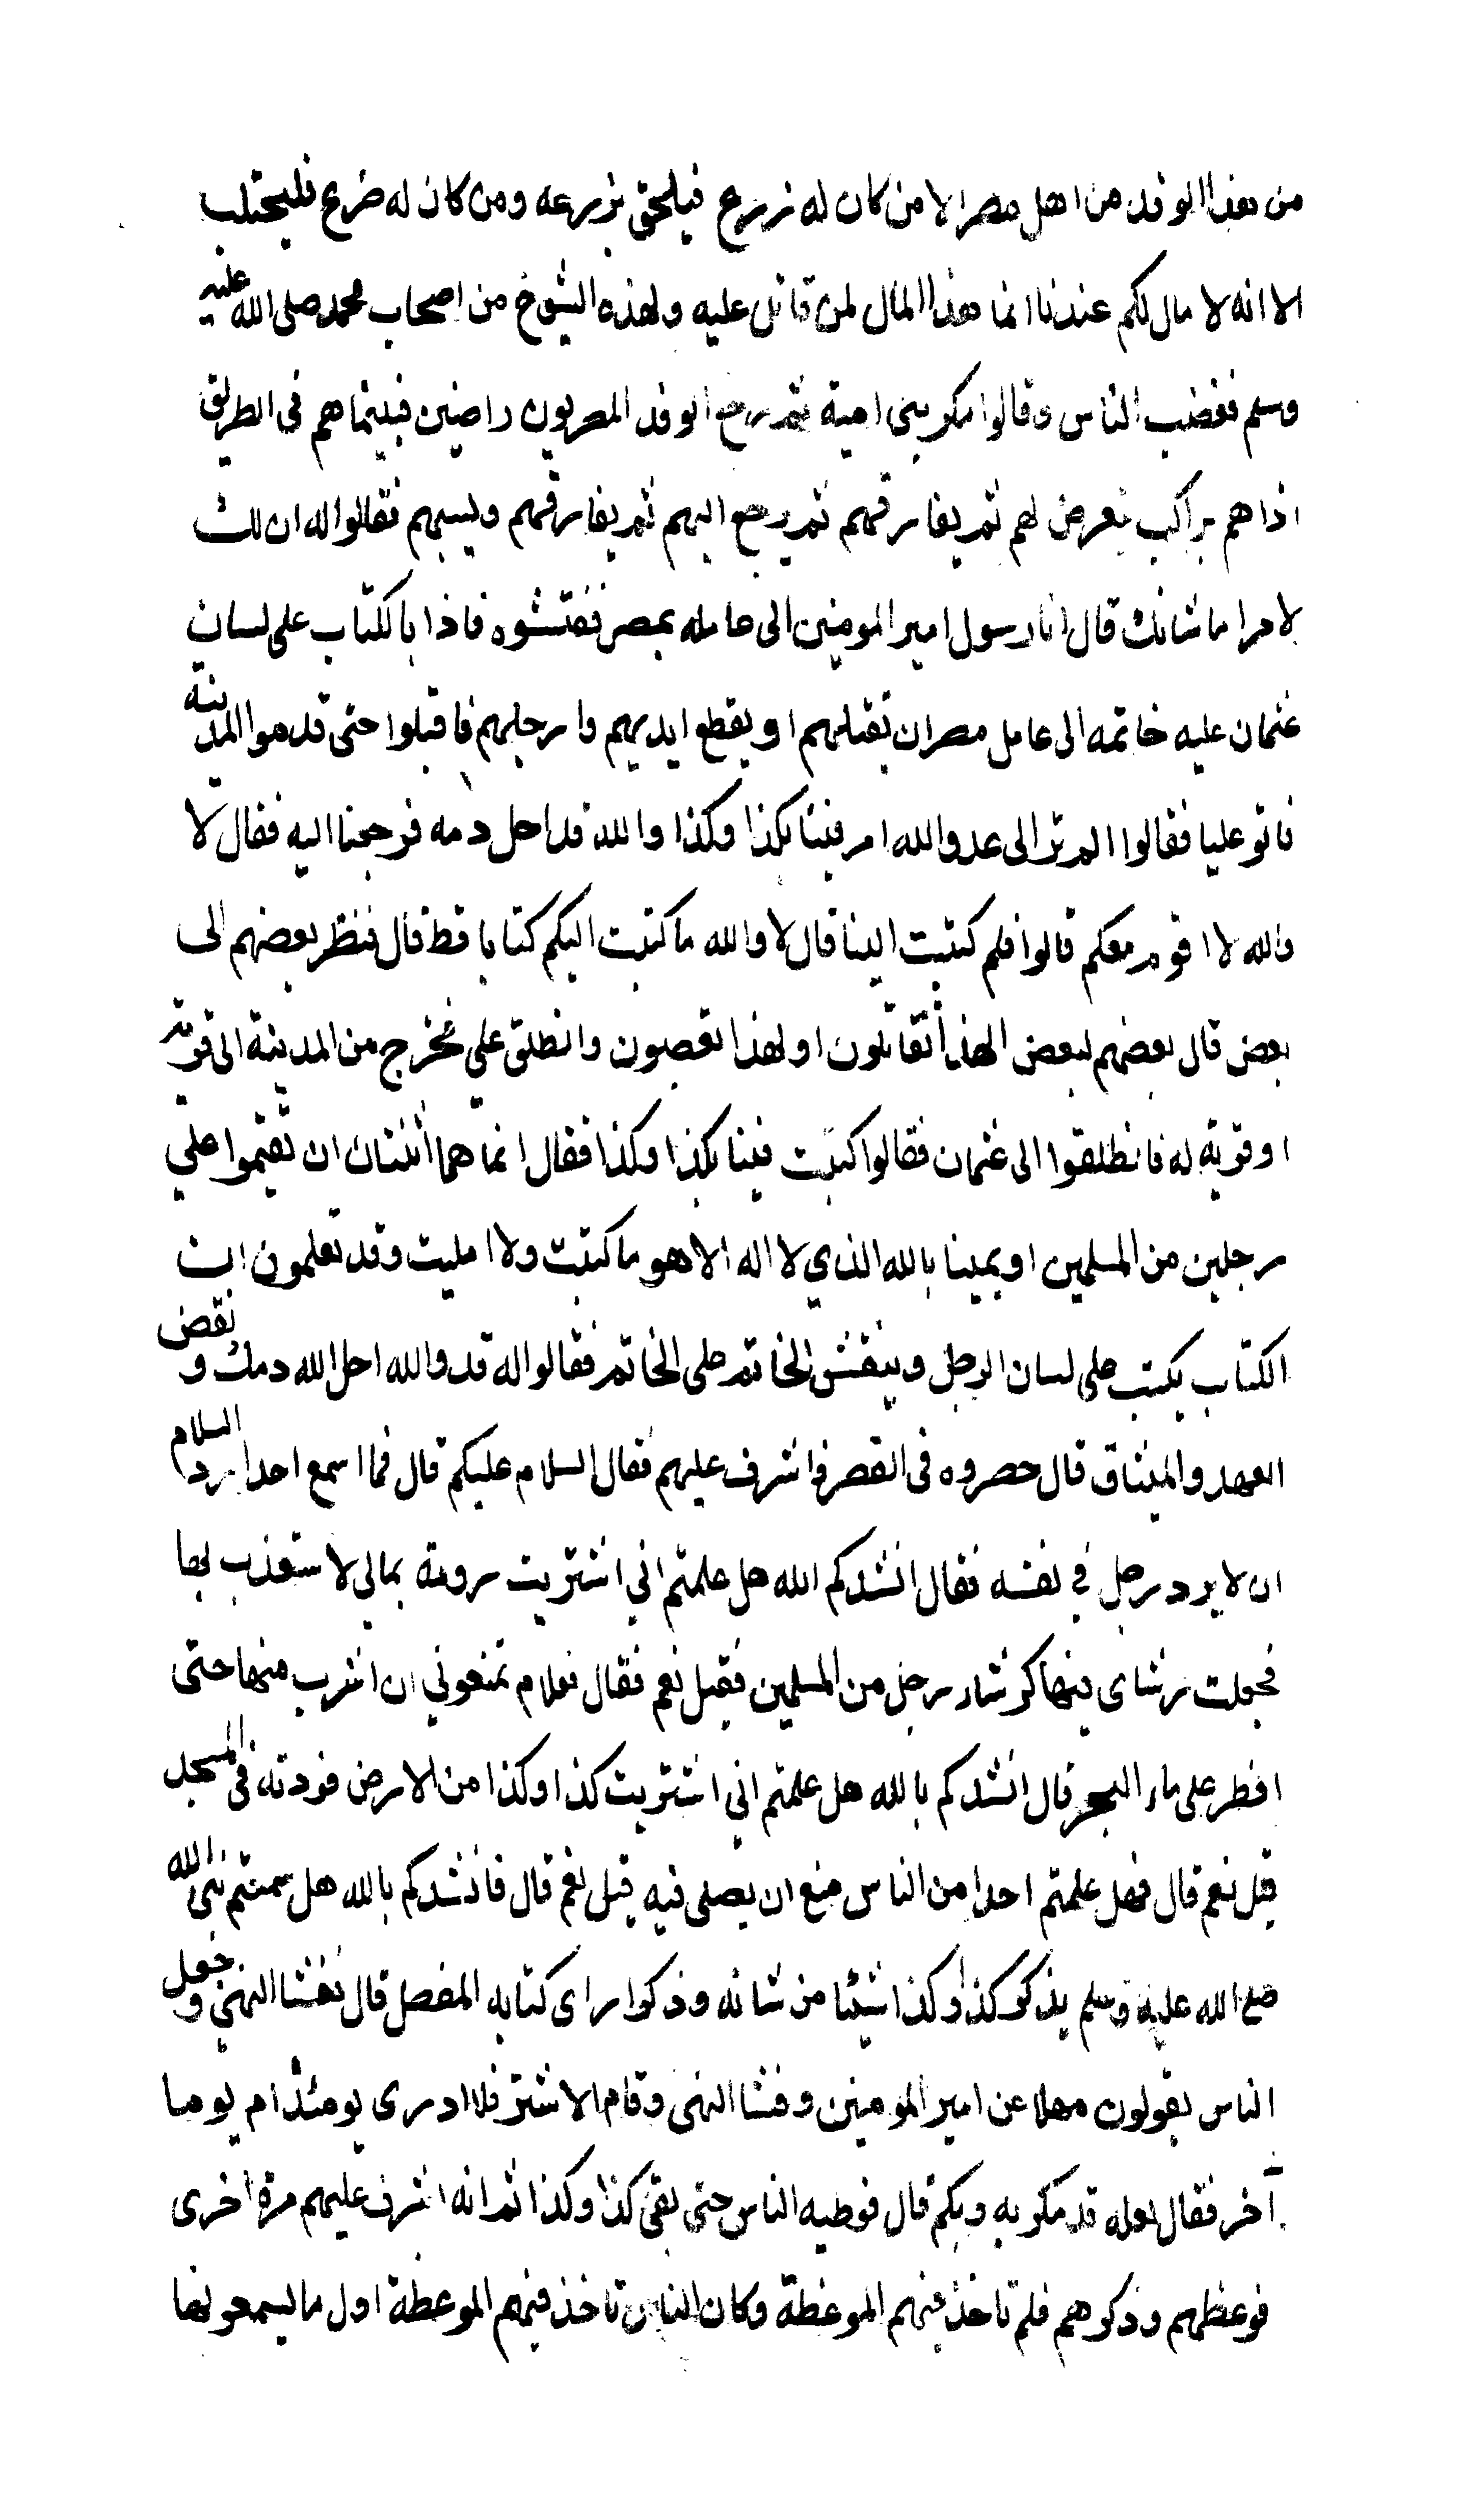 من هذا الوفد من اهل مصر الا من كان له زرع فيلحق بزرعه ومن كان له ضرع فليحتلب
الا انه لا مال لكم عندنا انما هذا المال لمن قاتل عليه ولهذه الشيوخ من اصحاب محمد صلى الله عليه
وسلم فغضب الناس وقالوا مكر بنى امية ثم رجع الوفد المصريون راضين فبينما هم فى الطريق
اذا هم براكب يتعرض لهم ثم يفارقهم ثم يرجع اليهم ثم يفارقهم ويسبهم فقالوا له ان لك
لامرا ما شانك قال انا رسول امير المومنين الى عامله بمصر ففتشوه فاذا بالكتاب على لسان
عثمان عليه خاتمه الى عامل مصر ان يقتلهم او يقطع ايديهم وارجلهم فاقبلوا حتى قدموا المدينة
فاتو عليا فقالوا الم تر الى عدو الله امر فينا بكذا وكذا والله قد احل دمه فرجعنا اليه فقال لا
والله لا اقوم معكم قالوا فلم كتبت الينا قال لا والله ما كتبت اليكم كتابا قط قال فنظر بعضهم الى
بعض قال بعضهم لبعض الهذا تقاتلون او لهذا تغصبون وانطلق علي فخرج من المدينة الى قرية
او قرية له فانطلقوا الى عثمان فقالوا كتبت فينا بكذا وكذا فقال انما هما اثنتان ان تقيموا علي
رجلين من المسلمين او يمينا بالله الذي لا اله الا هو ما كتبت ولا امليت وقد تعلمون ان
الكتاب يكتب على لسان الرجل وينقش الخاتم على الخاتم فقالوا له قد والله احل الله دمك ونقض
العهد والميثاق قال حصروه فى القصر فاشرف عليهم فقال السلام عليكم قال فما اسمع احدا رد السلام
ان لا يرد رجل في نفسه فقال انشدكم الله هل علمتم اني اشتريت رومة بمالى لا ستعذب بها
فجعلت رشاى فيها كرشاء رجل من المسلمين فقيل نعم فقال فعلام تمنعوني ان اشرب منها حتى
افطر على ماء البحر قال انشدكم بالله هل علمتم اني اشتريت كذا وكذا من الارض فزدته فى المسجد
قيل نعم قال فهل علمتم احدا من الناس منع ان يصلى فيه قيل نعم قال فانشدكم بالله هل سمعتم نبى الله
صلى الله عليه وسلم يذكر كذا وكذا شيئا من شانه وذكوا راى كتابه المفصل قال ففشا النهي وجعل
الناس يقولون مهلا عن امير المومنين وفشا النهى وقام الاشتر فلا ادرى يومئذ ام يوما
آخر فقال لعله قد مكر به وبكم قال فوطيه الناس حتى لقى كذا وكذا ثم انه اشرف عليهم مرة اخرى
فوعظهم وذكرهم فلم تاخذ فيهم الموعظة وكان الناس تاخذ فيهم الموعظة اول ما يسمعونها